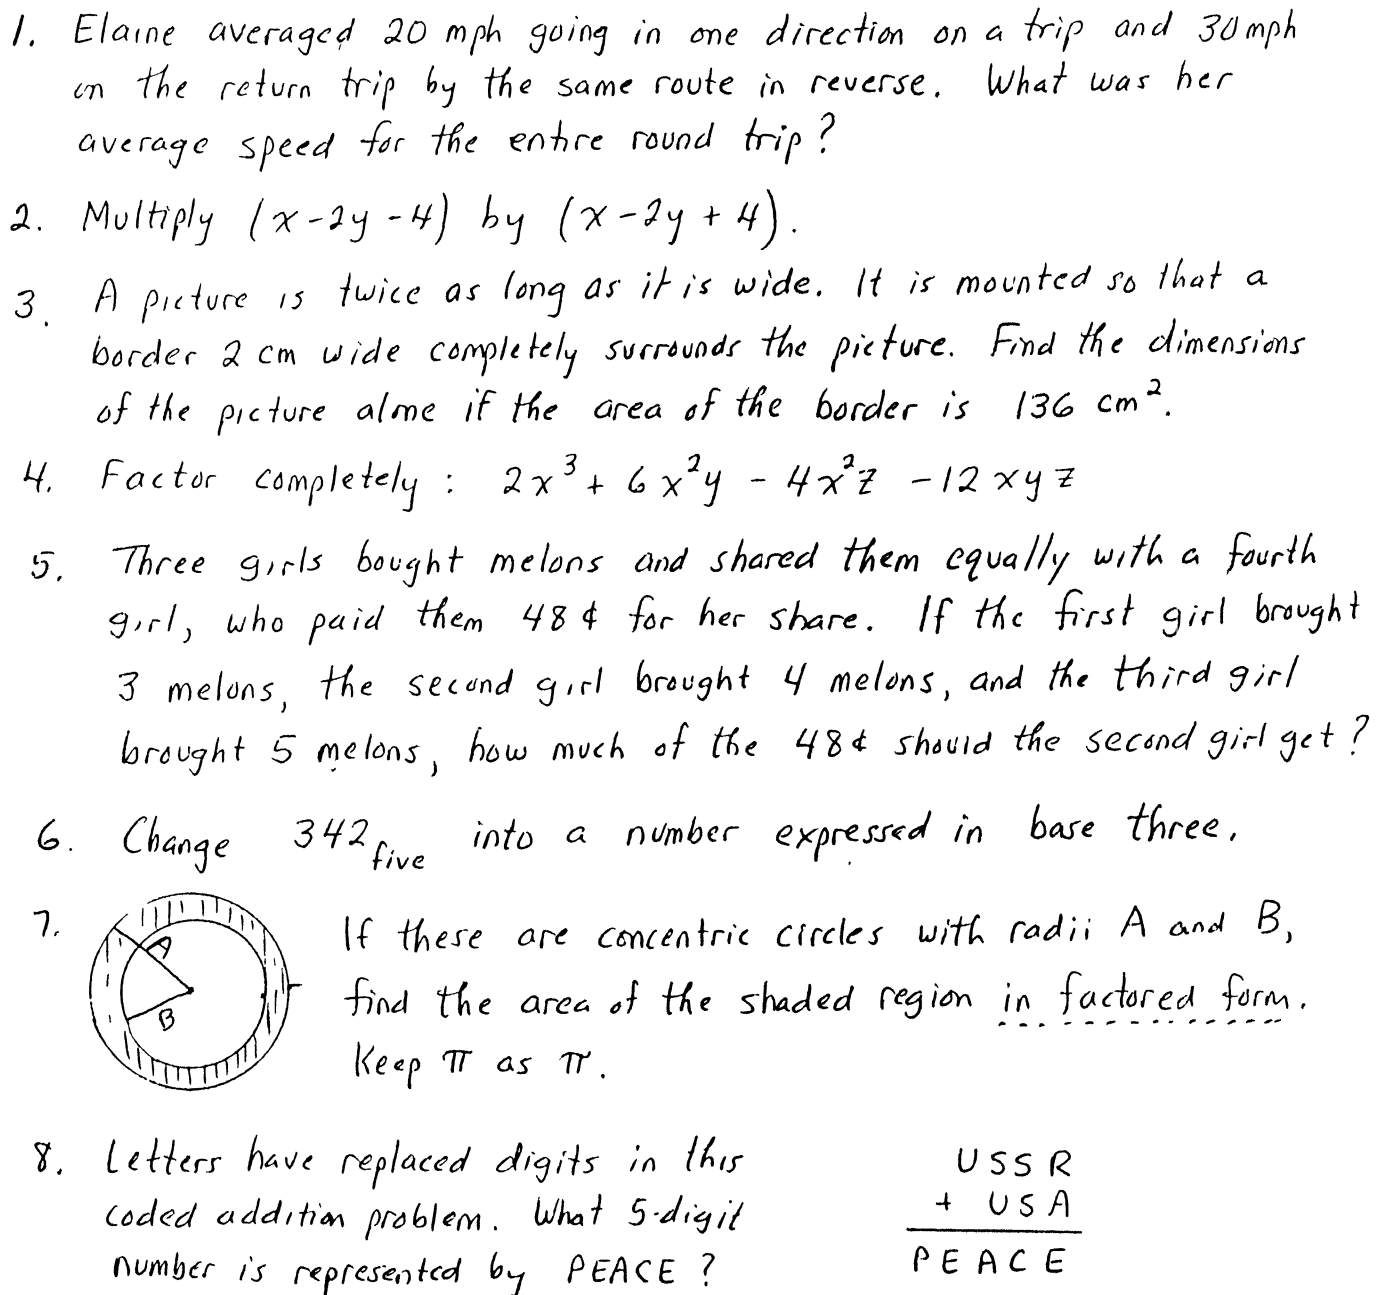 1. Elaine averaged 20 mph going in one direction on a trip and 30 mph
on the return trip by the same route in reverse. What was her
average speed for the entire round trip?
2. Multiply (x-2y-4) by (x-2y+4).
3. A picture is twice as long as it is wide. It is mounted so that a
border 2 cm wide completely surrounds the picture. Find the dimensions
of the picture alone if the area of the border is 136 cm².
4. Factor completely: 2x³ + 6x²y - 4x²z - 12xyz
5. Three girls bought melons and shared them equally with a fourth
girl, who paid them 48¢ for her share. If the first girl brought
3 melons, the second girl brought 4 melons, and the third girl
brought 5 melons, how much of the 48¢ should the second girl get?
6. Change 342 five into a number expressed in base three.
7. A B
If these are concentric circles with radii A and B,
find the area of the shaded region in factored form.
Keep π as π.
8. Letters have replaced digits in this
coded addition problem. What 5-digit
number is represented by PEACE?
USSR
+ USA
PEACE